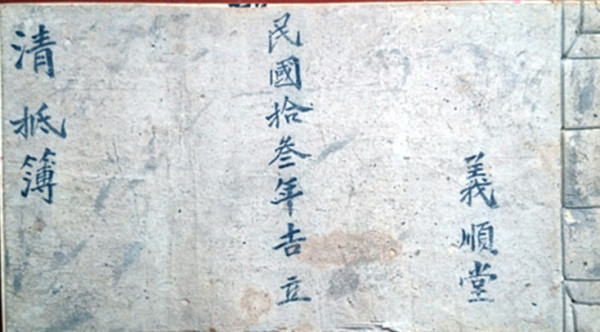 義順堂
民國拾叁年吉立
清抵簿